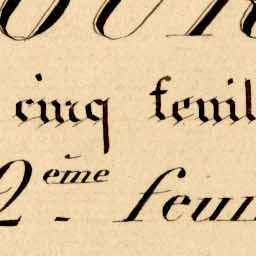 OUR
cinq feuil
2ème - feuil